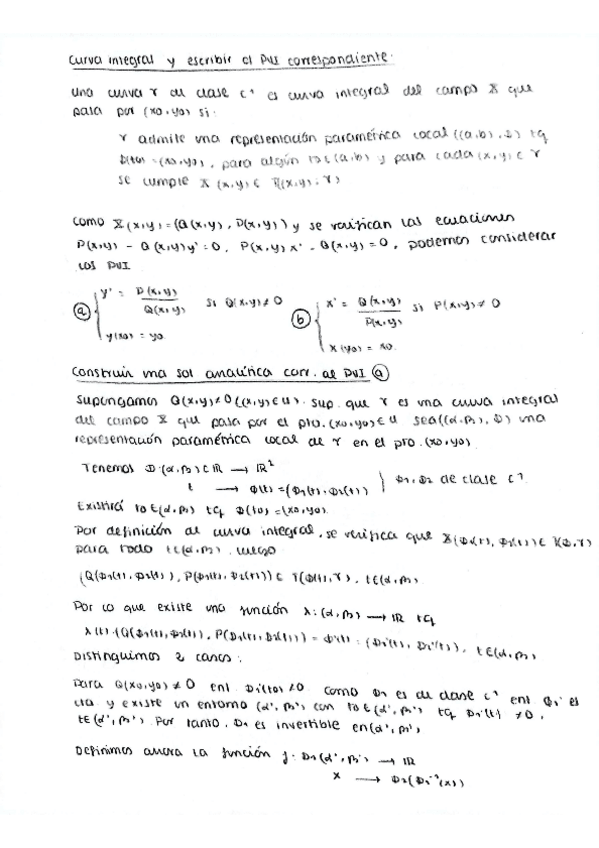 Curva integral y escribir el PVI correspondiente:
una curva γ de clase C¹ es curva integral del campo X que
pasa por (x0,y0) si:
γ admite una representación paramétrica local ((a,b), Φ) tq
Φ(t0) = (x0,y0), para algún t0 ∈ (a,b) y para cada (x,y) ∈ γ
se cumple X(x,y) ∈ T((x,y), γ)
como X(x,y) = (Q(x,y), P(x,y)) y se verifican las ecuaciones
P(x,y) - Q(x,y)y' = 0, P(x,y)x' - Q(x,y) = 0, podemos considerar
los PVI
(a) { y' = P(x,y) / Q(x,y) si Q(x,y) ≠ 0 (b) { x' = Q(x,y) / P(x,y) si P(x,y) ≠ 0
y(x0) = y0. x(y0) = x0.
Construir una sol analítica corr. al PVI (a)
Supongamos Q(x,y) ≠ 0 ((x,y) ∈ U). Sup. que γ es una curva integral
del campo X que pasa por el pto. (x0,y0) ∈ U sea ((α,β), Φ) una
representación paramétrica local de γ en el pto. (x0,y0).
Tenemos Φ: (α,β) ⊂ IR → IR²
t → Φ(t) = (Φ1(t), Φ2(t)) } Φ1, Φ2 de clase C¹.
Existirá t0 ∈ (α,β) tq Φ(t0) = (x0,y0).
Por definición de curva integral, se verifica que X(Φ1(t), Φ2(t)) ∈ T(Φ, γ)
para todo t ∈ (α,β). Luego
(Q(Φ1(t), Φ2(t)), P(Φ1(t), Φ2(t))) ∈ T(Φ(t), γ), t ∈ (α,β).
Por lo que existe una función λ: (α,β) → IR tq
λ(t)·(Q(Φ1(t), Φ2(t)), P(Φ1(t), Φ2(t))) = Φ'(t) = (Φ1'(t), Φ2'(t)), t ∈ (α,β)
Distinguimos 2 casos:
Para Q(x0,y0) ≠ 0 ent Φ1'(t0) ≠ 0 como Φ1 es de clase C¹ ent Φ1' es
cta y existe un entorno (α',β') con t0 ∈ (α',β') tq Φ1'(t) ≠ 0,
t ∈ (α',β'). Por tanto, Φ1 es invertible en (α',β')
Definimos ahora la función f: Φ1(α',β') → IR
x → Φ2(Φ1⁻¹(x))